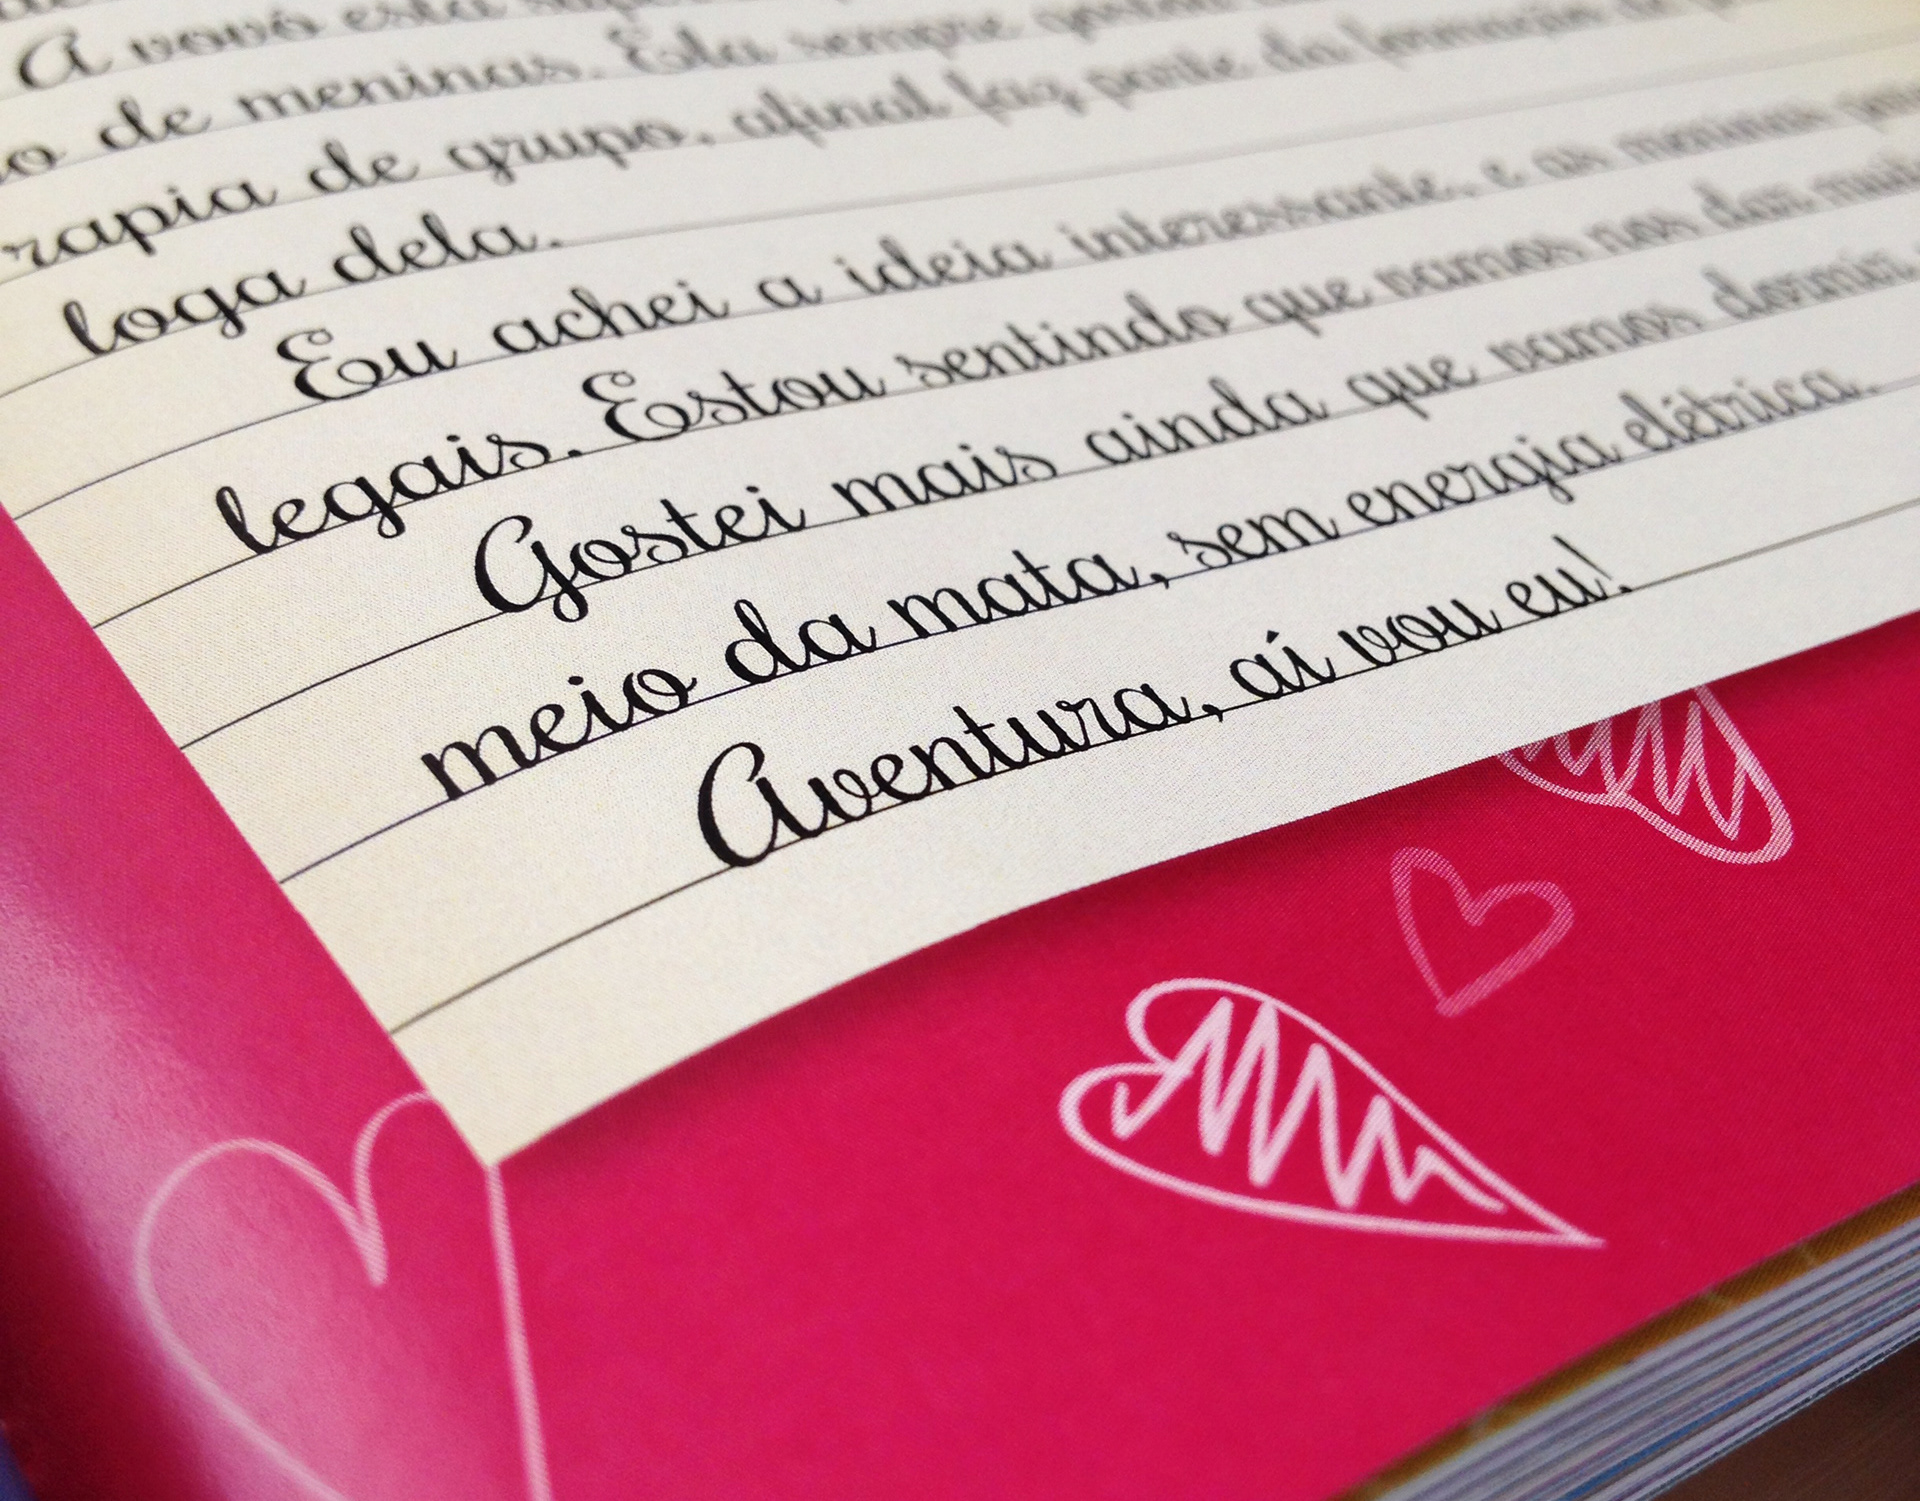 A vovó está
de meninas. Ela sempre
rapia de grupo, afinal faz parte da formação de
loga dela.
Eu achei a ideia interessante, e as meninas
legais. Estou sentindo que vamos nos dar muito
Gostei mais ainda que vamos dormir
meio da mata, sem energia elétrica.
Aventura, aí vou eu!